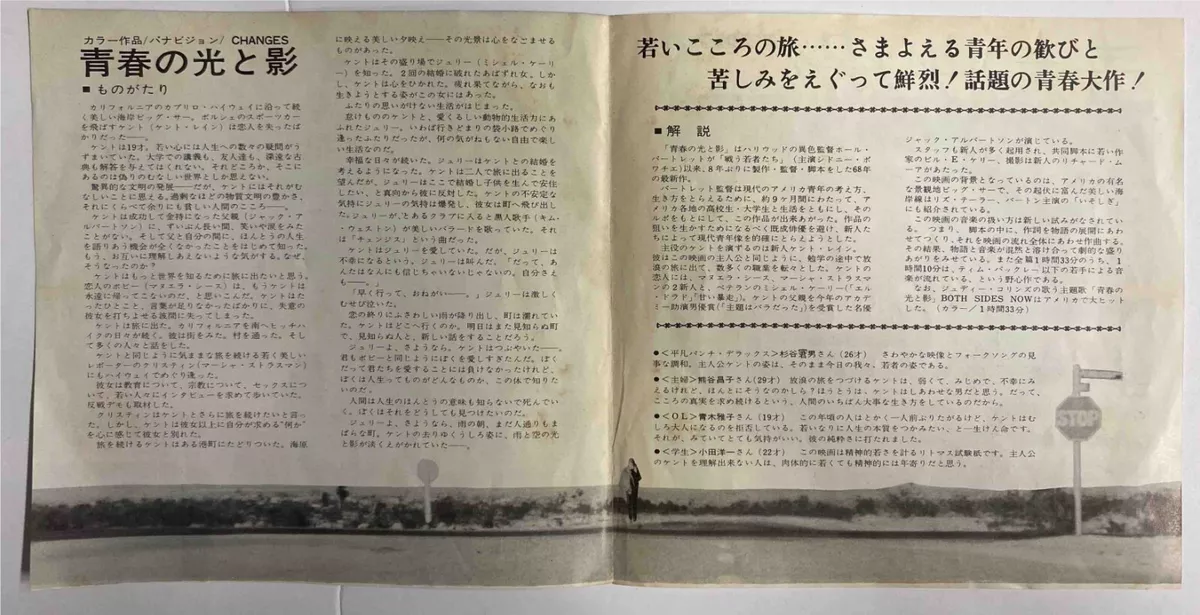 カラー作品/パナビジョン/ CHANGES
青春の光と影
■ものがたり
カリフォルニアのカブリロ・ハイウェイに沿って続
く美しい海岸ビッグ・サー。ポルシェのスポーツカー
を飛ばすケント(ケント・レイン)は恋人を失ったば
かりだった――。
ケントは19才。若い心には人生への数々の疑問がう
ずまいていた。大学での講義も、友人達も、深遠な古
典も解答を与えてはくれない。それどころか、そこに
あるのは偽りのむなしい世界としか思えない。
驚異的な文明の発展――だが、ケントにはそれがむ
なしいことに思える。過剰なほどの物質文明の豊かさ、
それにくらべて余りにも貧しい人間のこころ――。
ケントは成功して金持になった父親(ジャック・ア
ルバートソン)に、ずいぶん長い間、笑いや涙をみた
ことがない。そして父と自分の間に、ほんとうの人生
を語りあう機会が全くなかったことをはじめて知った。
もう、お互いに理解しあえないような気がする。なぜ、
そうなったのか?
ケントはもっと世界を知るために旅に出たいと思う。
恋人のボビー(マヌエラ・シース)は、もうケントは
永遠に帰ってこないのだ、と思いこんだ。ケントはた
ったひとこと、言葉が足りなかったばかりに、失意の
彼女を打ちよせる波間に失ってしまった。
ケントは旅に出た。カリフォルニアを南へヒッチハ
イクの日々が続く。彼は街をみた。村を通った。そし
て多くの人々と話をした。
ケントと同じように気ままな旅を続ける若く美しい
レポーターのクリスティン(マーシャ・ストラスマン)
にもハイウェイでめぐり逢った。
彼女は教育について、宗教について、セックスにつ
いて、若い人々にインタビューを求めて歩いていた。
反戦デモも取材した。
クリスティンはケントとさらに旅を続けたいと言っ
た。しかし、ケントは彼女以上に自分が求める"何か"
を心に感じて彼女と別れた。
旅を続けるケントはある港町にたどりついた。海原
に映える美しい夕映え――その光景は心をなごませる
ものがあった。
ケントはその盛り場でジェリー(ミシェル・ケーリ
ー)を知った。2回の結婚に破れたあばずれ女。しか
し、ケントは心をひかれた。疲れ果てながら、なおも
生きようとする姿がこの女にはあった。
ふたりの思いがけない生活がはじまった。
怠けもののケントと、愛くるしい動物的生活力にあ
ふれたジェリー。いわば行きどまりの袋小路でめぐり
逢ったふたりだったが、何の気がねもない自由で楽し
い生活なのだ。
幸福な日々が続いた。ジェリーはケントとの結婚を
考えるようになった。ケントは二人で旅に出ることを
望んだが、ジェリーはここで結婚し子供を生んで安住
したい、と真向から彼に反対した。ケントの不安定な
気持にジェリーの気持は爆発し、彼女は町へ飛び出し
た。ジェリーが、とあるクラブに入ると黒人歌手(キム
・ウェストン)が美しいバラードを歌っていた。それ
は「チェンジス」という曲だった。
ケントはジェリーを愛していた。だが、ジェリーは
不幸になるという。ジェリーは叫んだ。「だって、あ
んたはなんにも信じちゃいないじゃないの。自分さえ
も――」
「早く行って、おねがい――。」ジェリーは激しく
むせび泣いた。
恋の終りにふさわしい雨が降り出し、町は濡れてい
た。ケントはどこへ行くのか。明日はまた見知らぬ町
で、見知らぬ人と、新しい話をすることだろう。
ジェリーよ、さようなら。ケントはつぶやいた――。
君もボビーと同じようにぼくを愛しすぎたんだ。ぼく
だって君たちを愛することには負けなかったけれど、
ぼくは人生ってものがどんなものか、この体で知りた
いのだ。
人間は人生のほんとうの意味も知らないで死んでい
く。ぼくはそれをどうしても見つけたいのだ。
ジェリーよ、さようなら。雨の朝、まだ人通りもま
ばらな町。ケントの去りゆくうしろ姿に、雨と空の光
と影が淡くえがかれていた――。
若いこころの旅……さまよえる青年の歓びと
苦しみをえぐって鮮烈!話題の青春大作!
■解 説
「青春の光と影」はハリウッドの異色監督ホール・
バートレットが「戦う若者たち」(主演シドニー・ポ
ワチエ)以来、8年ぶりに製作・監督・脚本をした68年
の最新作。
バートレット監督は現代のアメリカ青年の考え方、
生き方をとらえるために、約9ヶ月間にわたって、ア
メリカ各地の高校生・大学生と生活をともにし、その
ルポをもとにして、この作品が出来あがった。作品の
狙いを生かすためになるべく既成俳優を避け、新人た
ちによって現代青年像を的確にとらえようとした。
主役のケントを演ずるのは新人ケント・レイン。
彼はこの映画の主人公と同じように、勉学の途中で放
浪の旅に出て、数多くの職業を転々とした。ケントの
恋人には、マヌエラ・シース、マーシャ・ストラスマ
ンの2新人と、ベテランのミシェル・ケーリー(「エル
・ドラド」「甘い暴走」)。ケントの父親を今年のアカデ
ミー助演男優賞(「主題はバラだった」)を受賞した名優
ジャック・アルバートソンが演じている。
スタッフも新人が多く起用され、共同脚本に若い作
家のビル・E・ケリー、撮影は新人のリチャード・ム
ーアがあたった。
この映画の背景となっているのは、アメリカの有名
な景観地ビッグ・サーで、その起伏に富んだ美しい海
岸線はリズ・テーラー、バートン主演の「いそしぎ」
にも紹介されている。
この映画の音楽の扱い方は新しい試みがなされてい
る。つまり、脚本の中に、作詞を物語の展開にあわ
せてつくり、それを映画の流れ全体にあわせ作曲する。
その結果、物語と音楽が混然と溶け合って劇的な盛り
あがりをみせている。また全篇1時間33分のうち、1
時間10分は、ティム・バックレー以下の若手による音
楽が流れている、という野心作である。
なお、ジュディー・コリンズの歌う主題歌「青春の
光と影」BOTH SIDES NOWはアメリカで大ヒット
した。(カラー/1時間33分)
●<平凡パンチ・デラックス>杉谷寛男さん(26才) さわやかな映像とフォークソングの見
事な調和。主人公ケントの姿は、そのまま今日の我々、若者の姿である。
●<主婦>熊谷昌子さん(29才) 放浪の旅をつづけるケントは、弱くて、みじめで、不幸にみ
えるけれど、ほんとにそうなのかしら?ほうとうは、ケントはしあわせな男だと思う。だって、
こころの真実を求め続けるという、人間のいちばん大事な生き方をしているのだから。
●<O.L>青木雅子さん(19才) この年頃の人はとかく一人前ぶりたがるけど、ケントはむ
しろ大人になるのを拒否している。若いなりに人生の本質をつかみたい、と一生けん命です。
それが、みていてとても気持がいい。彼の純粋さに打たれました。
●<学生>小田洋一さん(22才) この映画は精神的若さを計るリトマス試験紙です。主人公
のケントを理解出来ない人は、肉体的に若くても精神的には年寄りだと思う。
STOP